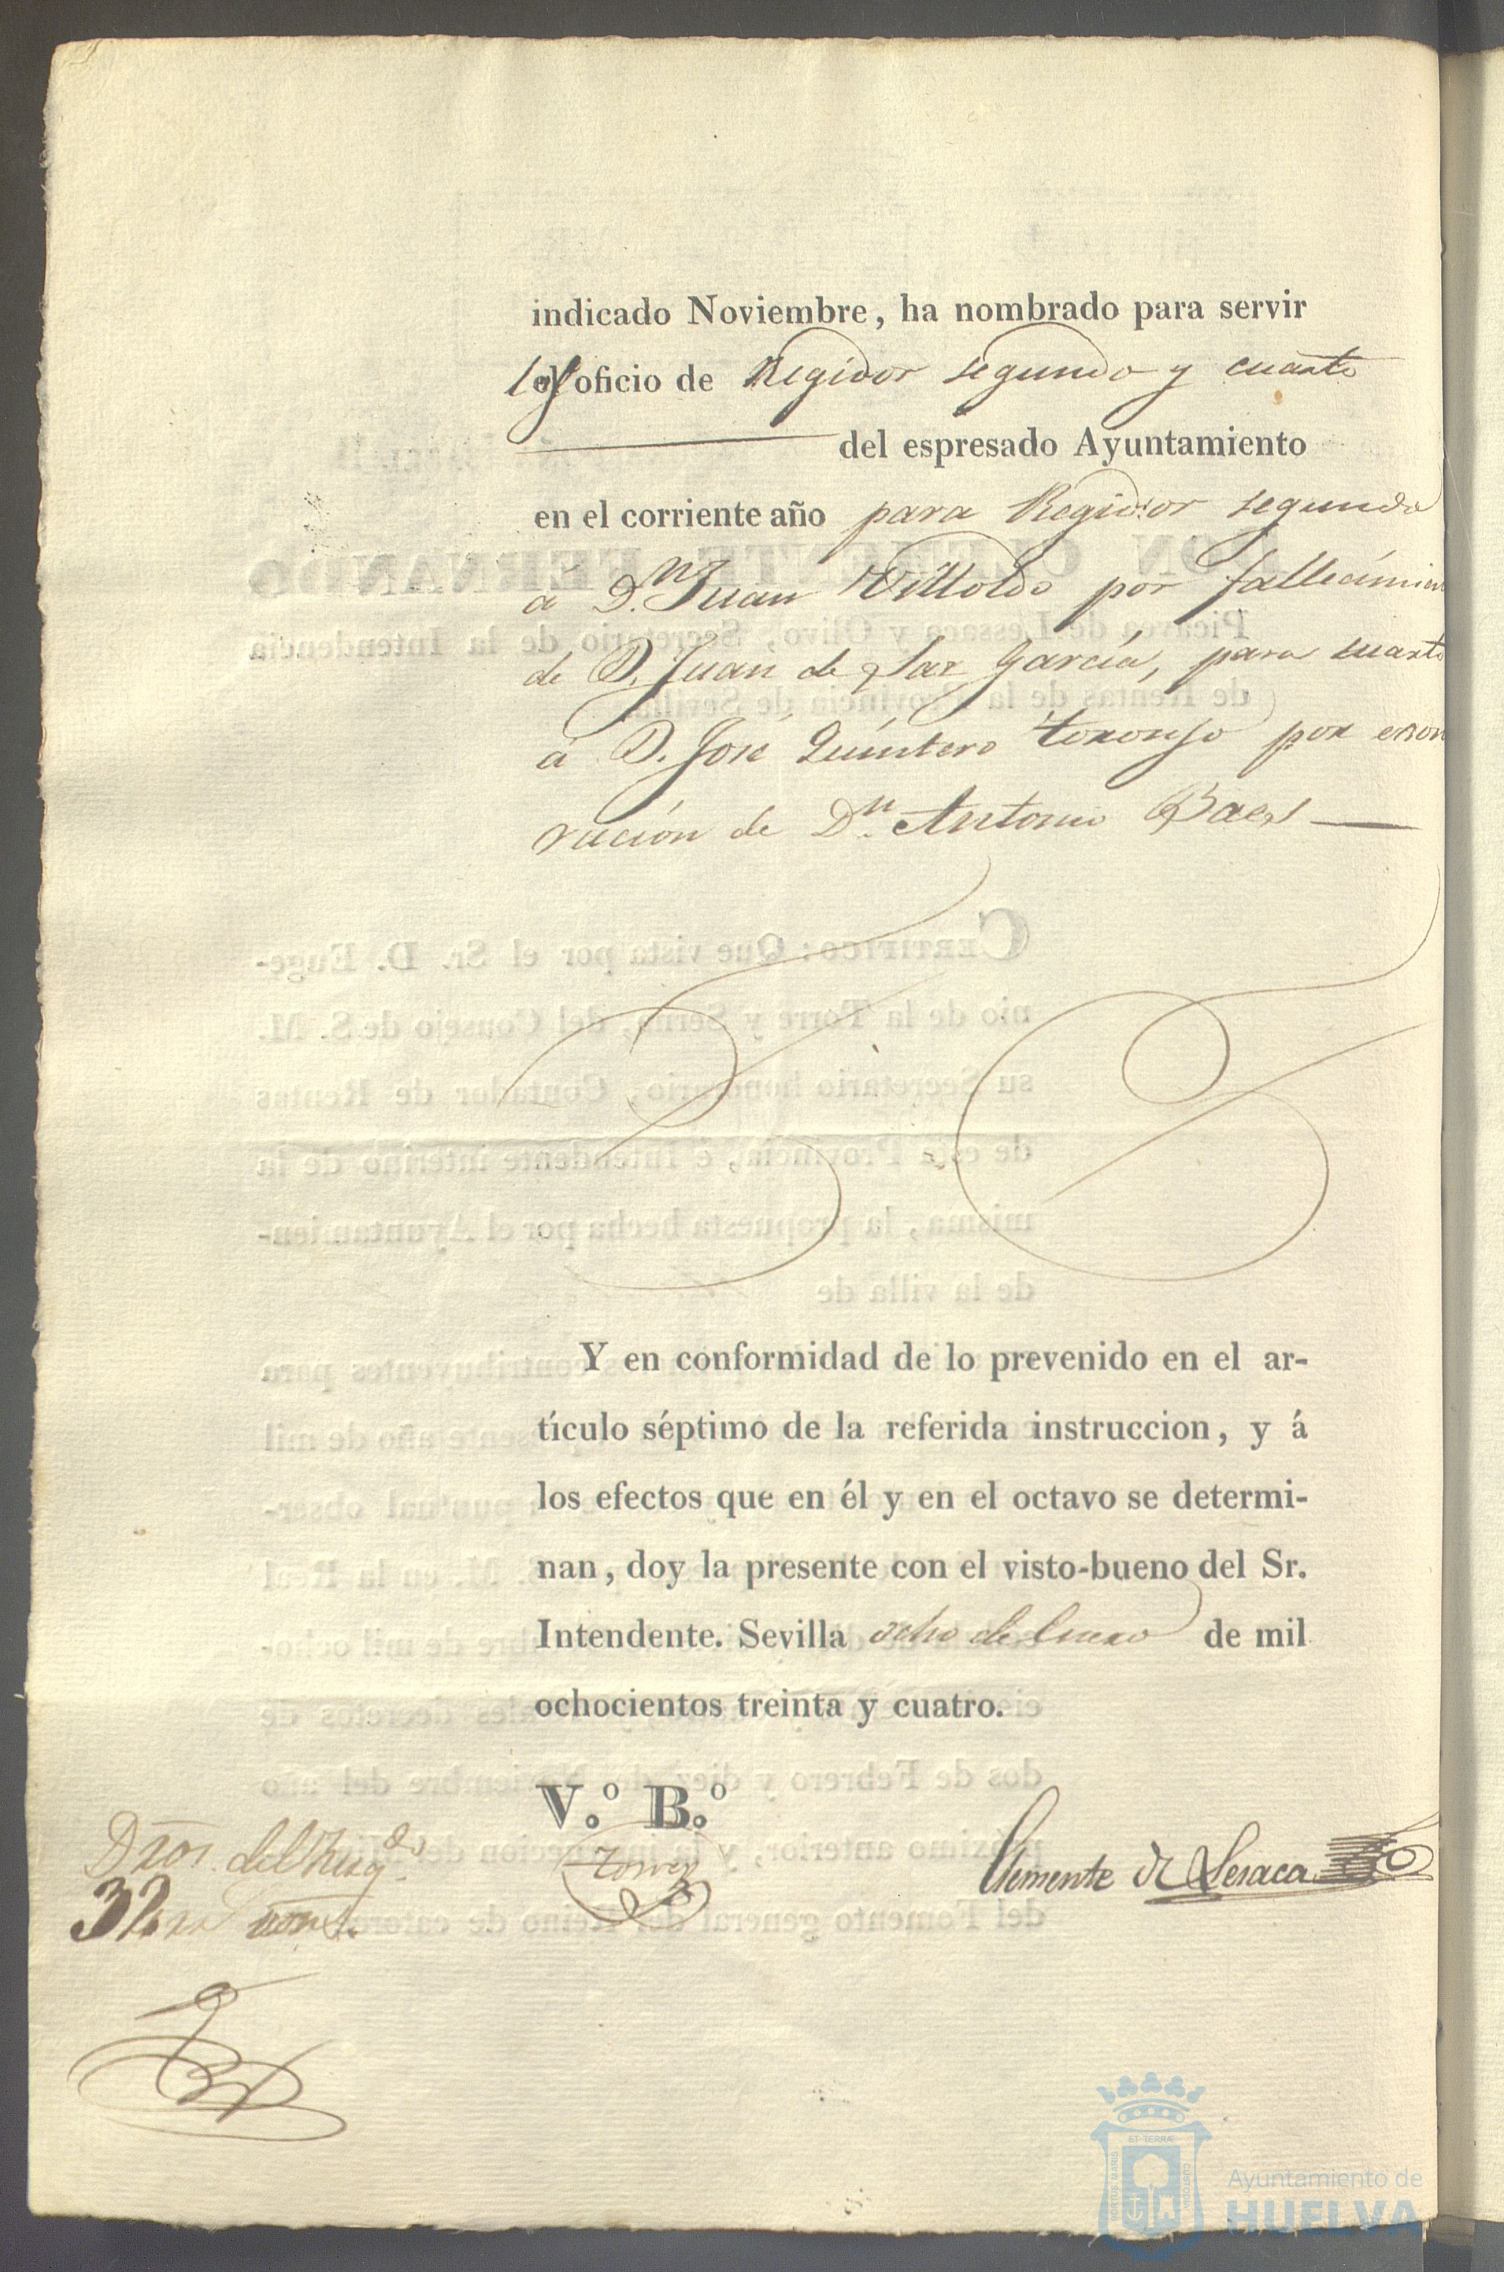 indicado Noviembre, ha nombrado para servir
el oficio de Regidor segundo y cuarto
del espresado Ayuntamiento
en el corriente año para Regidor segundo
a D.n Juan Villoldo por fallecimien
de D. Juan de Paz García, para cuarto
á D. José Quintero toronjo por exon
racion de D.n Antonio Baes
Y en conformidad de lo prevenido en el ar-
tículo séptimo de la referida instruccion, y á
los efectos que en él y en el octavo se determi-
nan, doy la presente con el visto-bueno del Sr.
Intendente. Sevilla ocho de Enero de mil
ochocientos treinta y cuatro.
V.º B.º
Torre
Clemente de Lesaca
Dros. del
32
Ayuntamiento de
HUELVA
PORTUS MARIS
ET TERRÆ
CUSTODIA